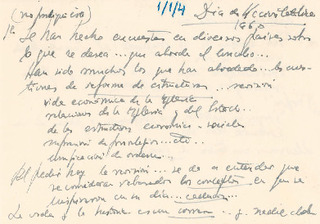 (no participación) 1/1/4 Día de H
1960
1º Se han hecho encuestas en diversos países sobre
lo que se desea... que aborde el concilio...
Han sido muchos los que han abordado... las cues-
tiones de reforma de estructuras... revisión
vida económica de la Iglesia
relaciones de la Iglesia y del Estado...
de las estructuras económico-sociales
supresión de privilegios... etc...
unificación de ordenes...
Al pedir hoy la revisión... se da a entender que
se consideran rebasados los conceptos en que se
inspiraron en su día... caducos...
La vida y la historia corren... y nadie